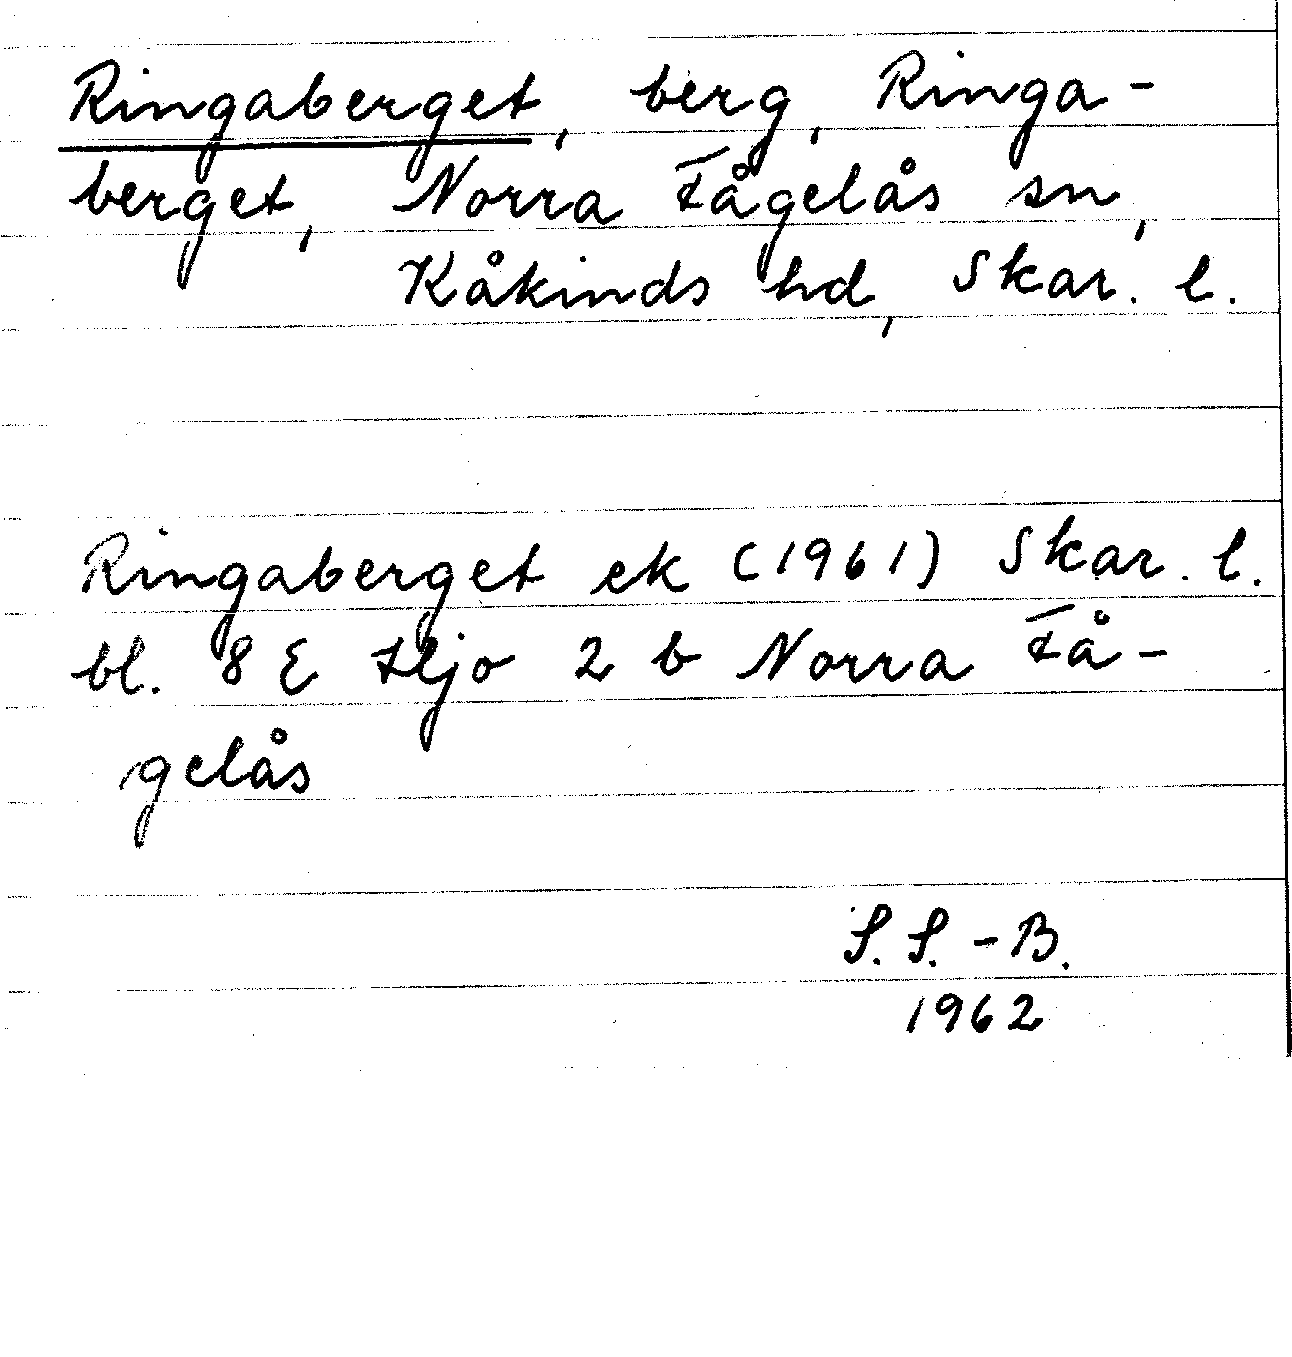 Ringaberget, berg, Ringa-
berget, Norra Fågelås sn,
Kåkinds hd, Skar. l.
Ringaberget ek (1961) Skar. l.
bl. 8 E Hjo 2 b Norra Få-
gelås
S. S. - B.
1962